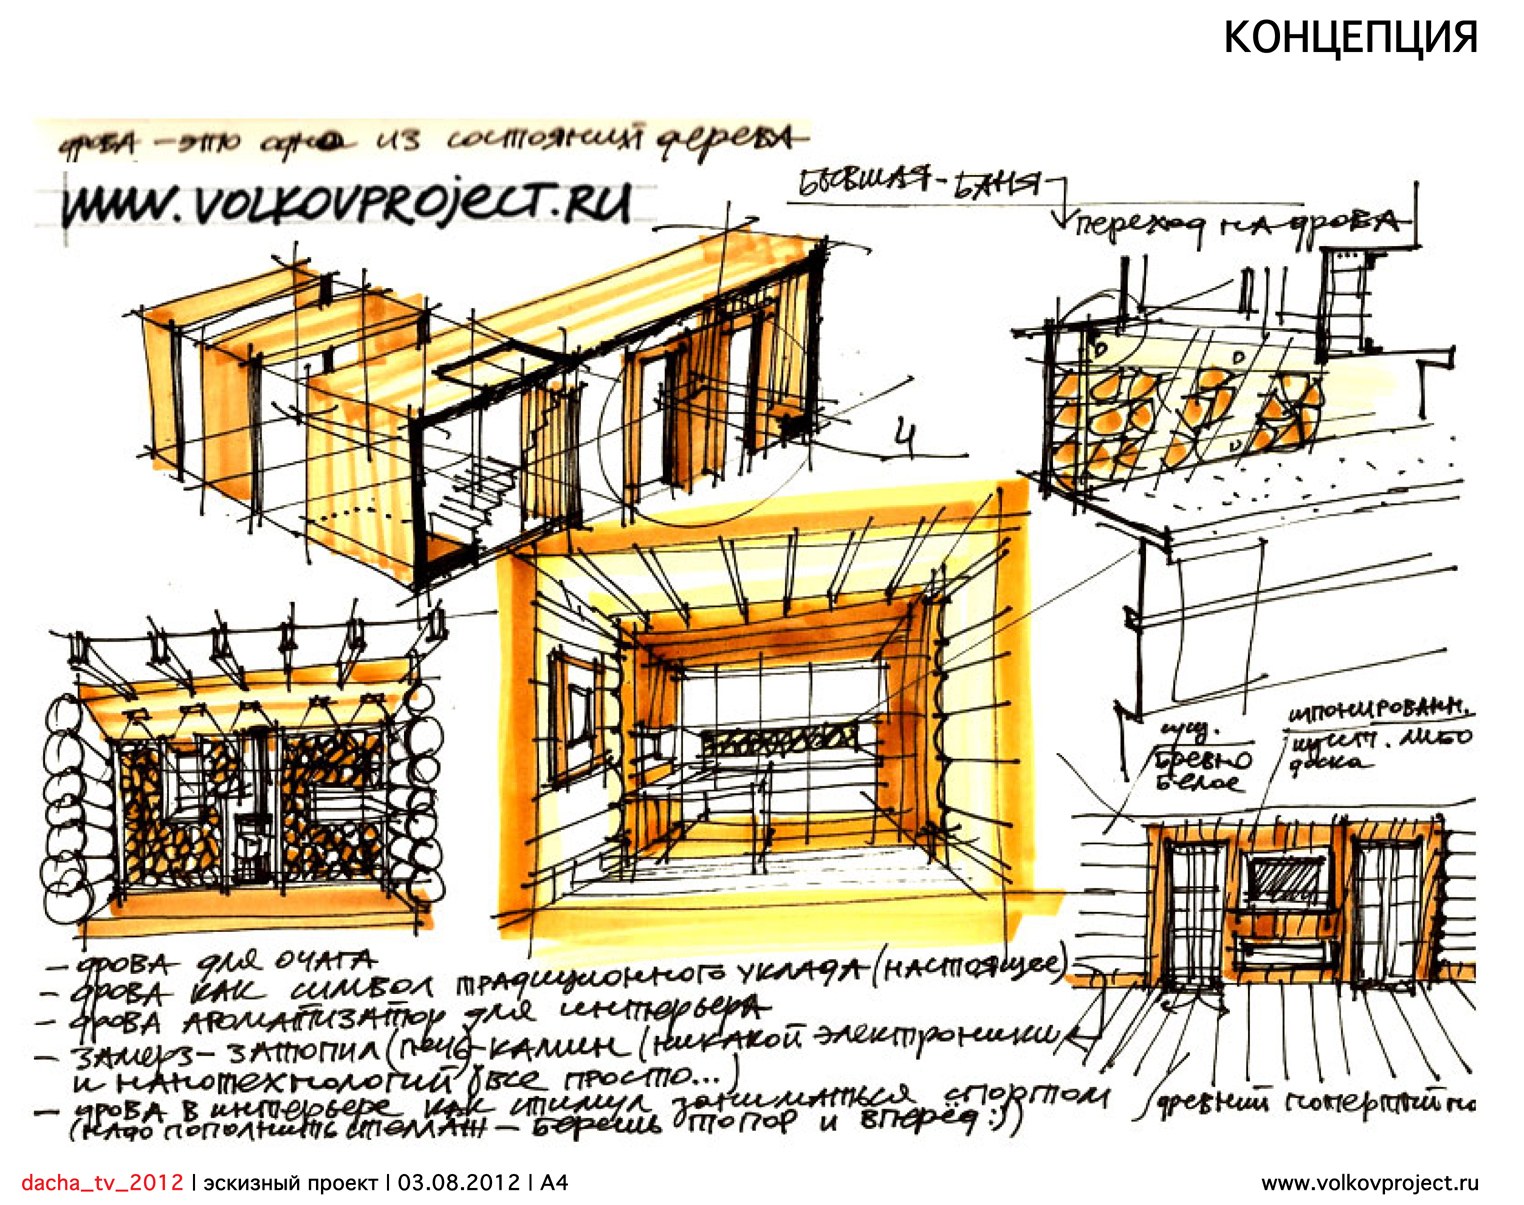 КОНЦЕПЦИЯ
дрова – это одно из состояний дерева
WWW.VOLKOVPROJECT.RU
бывшая-баня
переход на дрова
4
сущ.
бревно
белое
шпонированн.
щит. либо
доска
– дрова для очага
– дрова как символ традиционного уклада (настоящее)
– дрова ароматизатор для интерьера
– замерз – затопил (печь)-камин (никакой электроники
и нанотехнологий (все просто...)
– дрова в интерьере как стимул заниматься спортом
(надо пополнить стеллаж – берешь топор и вперед :))
древний потертый по
dacha_tv_2012 | эскизный проект | 03.08.2012 | A4
www.volkovproject.ru